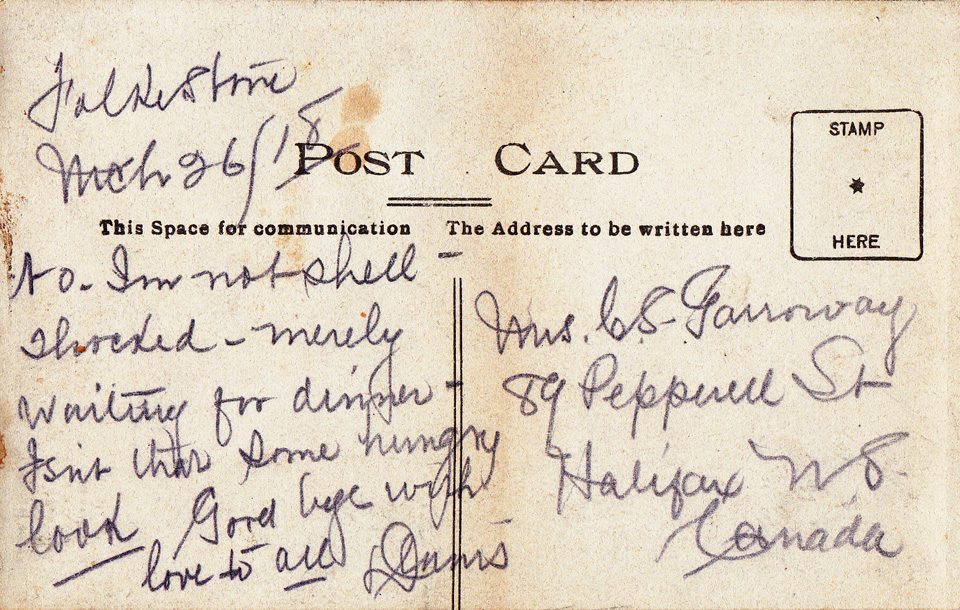 Folkestone
Mch 26/18
POST CARD
STAMP
HERE
This Space for communication
The Address to be written here
No. I'm not shell-
shocked - merely
waiting for dinner -
Isn't that some hungry
look Good bye with
love to all
Mrs. C. S. Garroway
89 Pepperell St
Halifax N S.
Canada